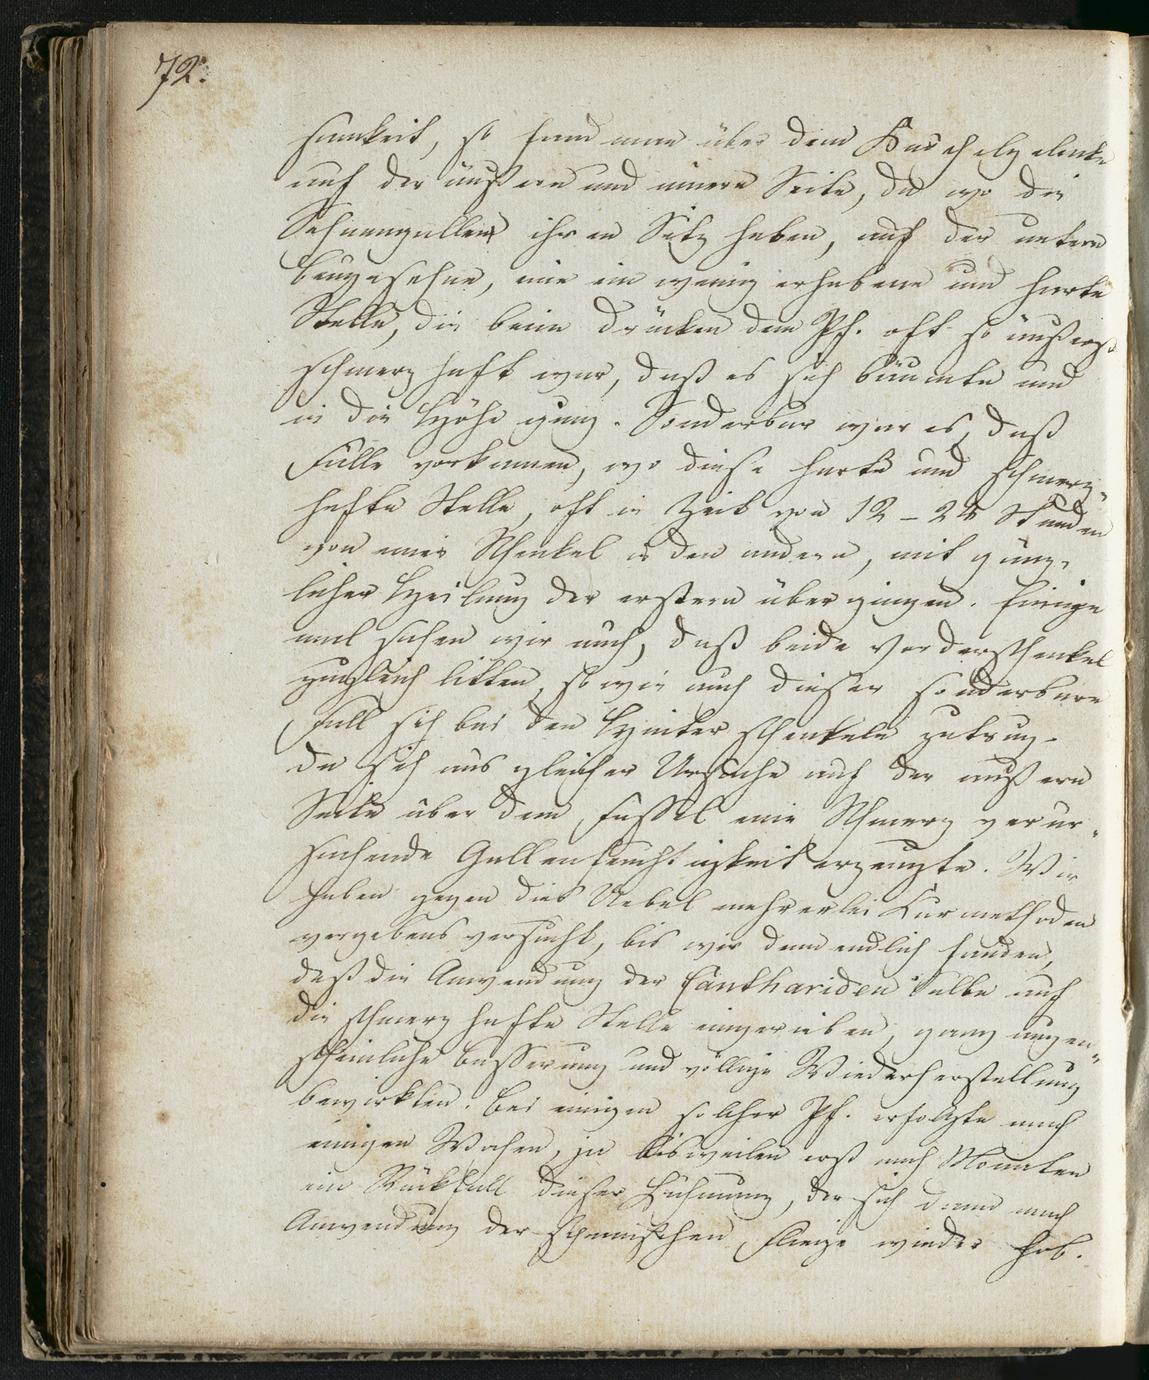 72.
samkeit, so fand man über dem Kuschelgelenke
auf der äußern und innern Seite, da wo die
Sehnengallen ihren Sitz haben, auf der untern
beugesehne, eine ein wenig erhabene und harte
Stelle, die beim Drücken dem Pf. oft so äußerst
schmerzhaft war, daß es sich bäumte und
in die Höhe ging. Sonderbar war es, daß
Fälle vorkamen, wo diese harte und schmerz-
hafte Stelle, oft in Zeit von 12 – 24 Stunden
von einer Schenkel in den andern, mit gänz-
licher Heilung der erstern über gingen. Einige
mal sahen wir auch, daß beide Vorderschenkel
zugleich litten, so wie auch dieser sonderbare
Fall sich bei den Hinterschenkeln zutrug.
da sich aus gleicher Ursache auf der äußern
Seite über dem Fessel eine Schmerz verur-
sachende Gallenfeuchtigkeit erzeugte. Wir
haben gegen dies Uebel mehrerlei Kurmethoden
vergebens versucht, bis wir denn endlich fanden,
daß die Anwendung der Canthariden Salbe auf
die schmerzhafte Stelle eingerieben, ganz augen-
scheinliche besserung und völlige Wiederherstellung
bewirkten. bei einigen solcher Pf. erfolgte nach
einigen Wochen, ja bisweilen erst nach Monaten
ein Rückfall dieser Lähmung, der sich dann nach
Anwendung der spanischen Fliege wieder hob.